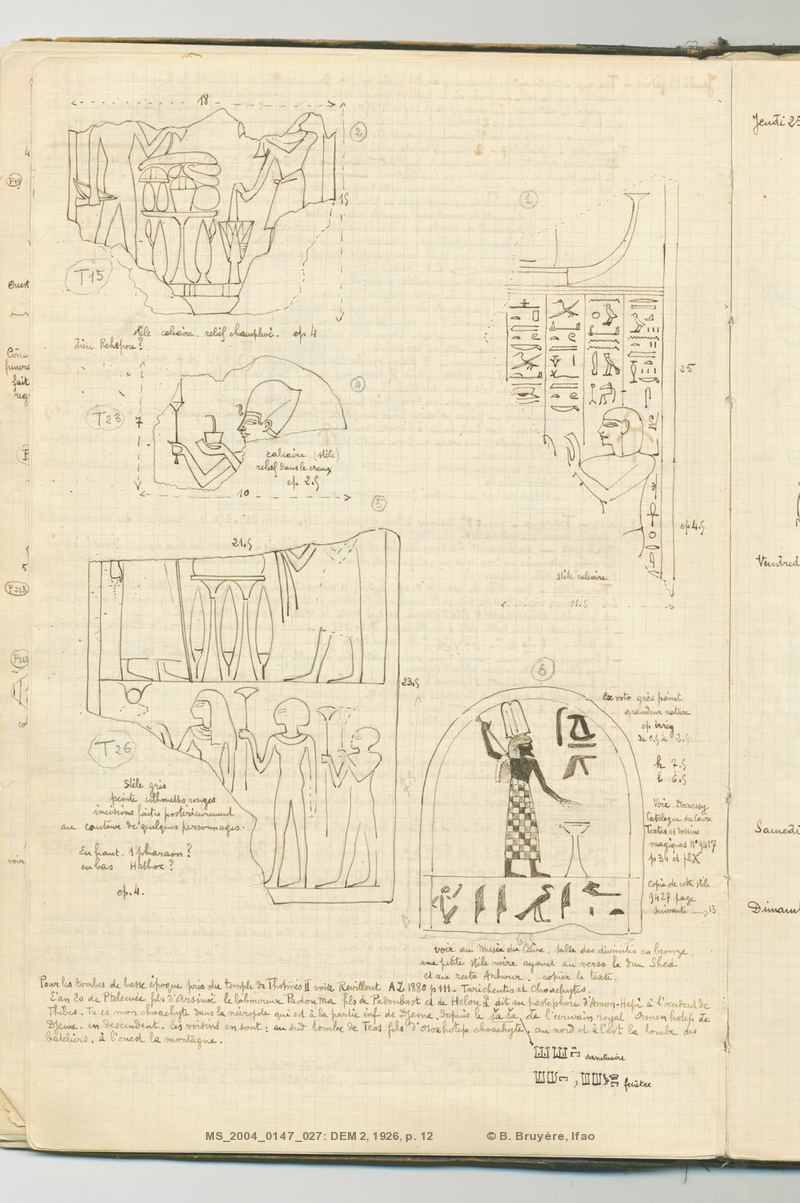 18
②
15
T15
stèle calcaire. relief champlevé. ep. 4
dieu Rehspou ?
④
T23
7
calcaire (stèle)
relief dans le creux
ep 2.5
10
①
25
ep 4.5
stèle calcaire
11.5
⑤
21.5
23.5
T26
Stèle grès
peinte silhouettes rouges
incisions faites postérieurement
au contour de quelques personnages.
En haut. 1 pharaon ?
en bas Hathor ?
ep. 4.
⑥
Ex voto grès peint
grandeur nature
ep irrég
de 0.5 à 2.5
h 7.5
l 6.5
Voir. Daressy
Catalogue du Caire
Textes et dessins
magiques N° 9427
p 34 et pl X
Copie de cette stèle
9427 page
suivante 13
voir au Musée du Caire, salle des divinités en bronze,
une petite stèle noire ayant au verso le dieu Shed
et au recto Anhour. copier le texte.
Pour les tombes de basse époque près du temple de Thotmès II voir Revillout AZ 1880 p 111 - Tarichentes et Choachytes.
L'an 20 de Ptolémée fils d'Arsinoé le laboureur Padouma fils de Padoubast et de Helou dit au pastophore d'Amon-Hepi à l'occident de
Thèbes. Tu es mon choachyte dans la nécropole qui est à la partie inf de Djeme. depuis le Ša Ša, de l'écrivain royal Amenhotep de
Djeme. en descendant. Les voisins en sont : au sud tombe de Teos fils d' choachyte, au nord et à l'est la tombe des
bateliers, à l'ouest la montagne.
sanctuaire
fenêtre
Jeudi 25
Vendred
Samedi
Dimanc
MS_2004_0147_027: DEM 2, 1926, p. 12 © B. Bruyère, Ifao